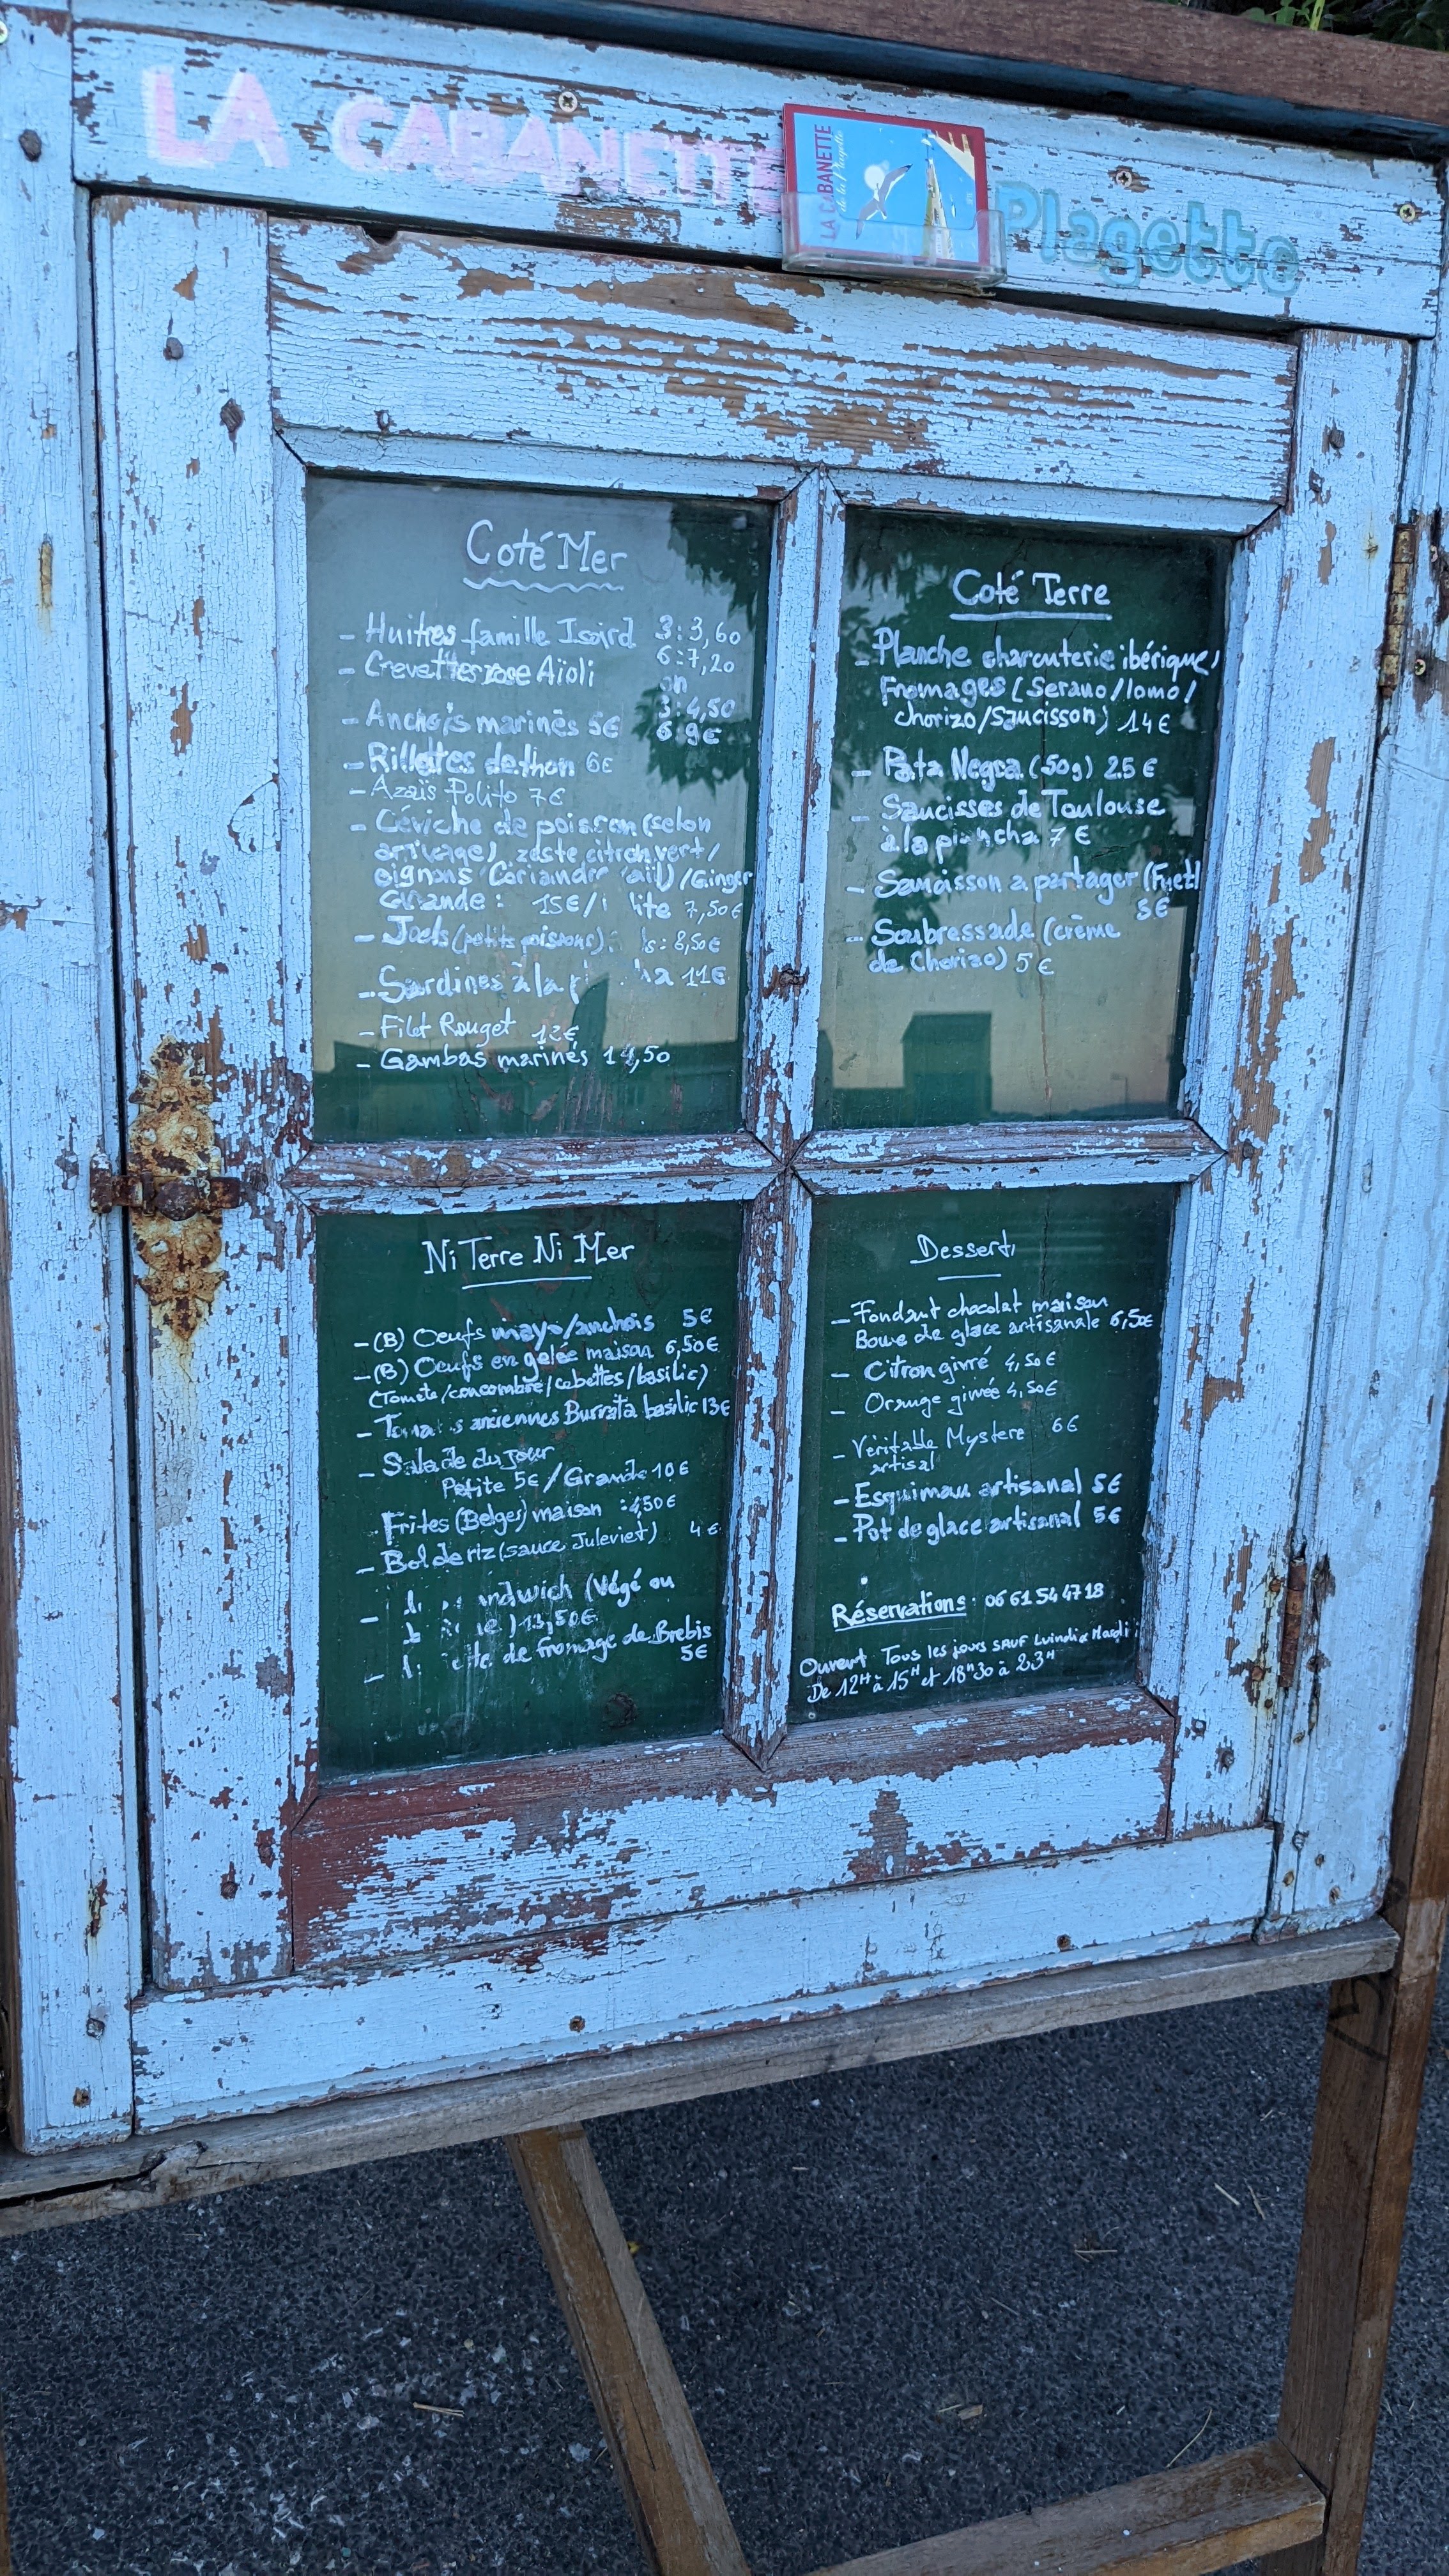 LA CABANETTE
LA CABANETTE
de la Plagette
Plagette
Coté Mer
- Huitres famille Isard 3:3,60
6:7,20
- Crevettes rose Aïoli
3:4,50
- Anchois marinés 5€ 6:9€
- Rillettes de thon 6€
- Azaïs Polito 7€
- Céviche de poisson (selon
arrivage) zeste citron vert/
oignons Coriandre (ail) /Ginger
Grande: 15€/ 7,50€
- Joels (petits poissons) 8,50€
- Sardines à la 11€
- Filet Rouget 12€
- Gambas marinés
Coté Terre
- Planche charcuterie ibérique/
Fromages (Serano/lomo/
chorizo/Saucisson) 14€
- Pata Negra (50g) 25€
- Saucisses de Toulouse
à la plancha 7€
- Saucisson a partager (Fuet)
5€
- Soubressade (crème
de Chorizo) 5€
Ni Terre Ni Mer
- (B) Oeufs mayo/anchois 5€
- (B) Oeufs en gelée maison 6,50€
(Tomate/concombre/cebettes/basilic)
- anciennes Burrata basilic 13€
- Salade du jour
Petite 5€/Grande 10€
Frites (Belges) maison : 4,50€
- Bol de riz (sauce Juleviet) 4€
- (Végé ou
) 13,50€
- de fromage de Brebis
5€
Desserts
- Fondant chocolat maison
Boule de glace artisanale 6,50€
- Citron givré 4,50€
- Orange givrée 4,50€
- Véritable Mystere 6€
artisal
- Esquimau artisanal 5€
- Pot de glace artisanal 5€
Réservations: 06 61 54 47 18
Ouvert Tous les jours SAUF Lundi & Mardi
De 12H à 15H et 18H30 à 23H